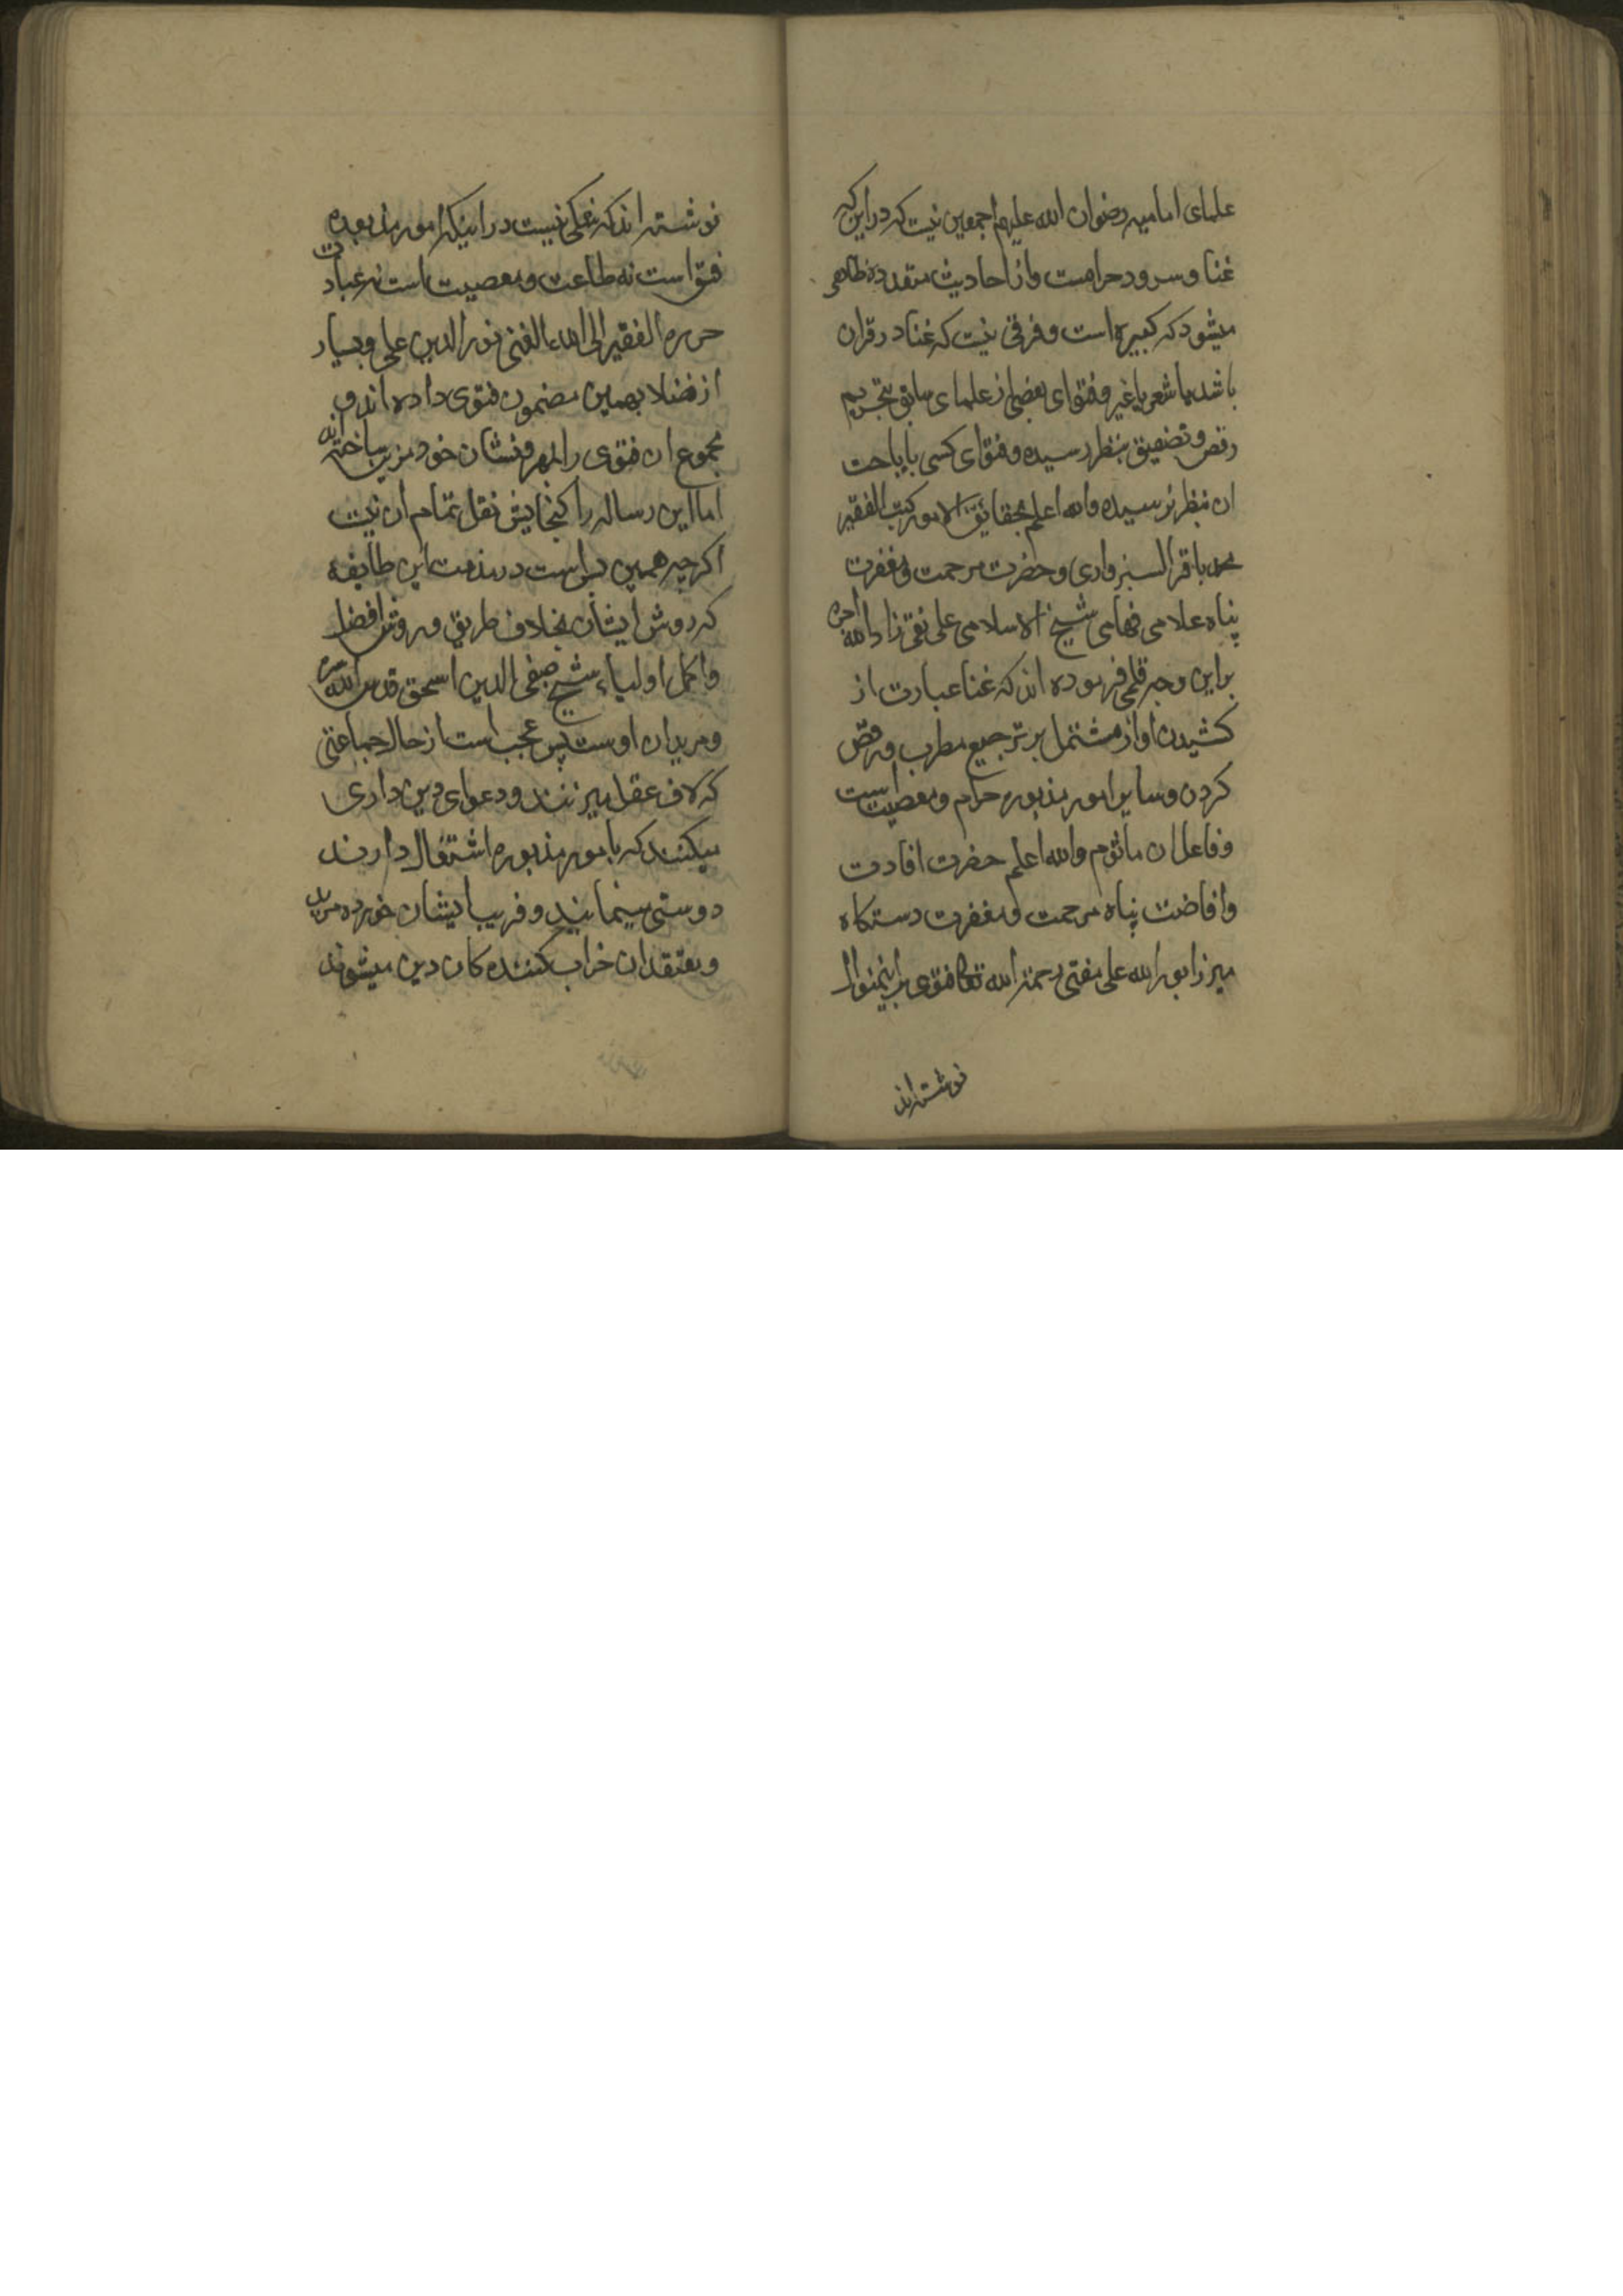 علمای امامیه رضوان الله علیهم اجمعین نیست که در این که
غنا و سرود حرامست و از احادیث متعدده ظاهر
میشود که کبیره است و فرقی نیست که غنا در قران
باشد یا شعر یا غیر و فتوای بعضی از علمای سابق بتحریم
رقص و تصفیق بنظر رسیده و فتوای کسی باباحت
ان بنظر نرسیده والله اعلم بحقائق الامور کتب الفقیر
محمد باقر السبزواری و حضرت مرحمت و مغفرت
پناه علامی فهامی شیخ الاسلامی علی نقی زاد الله اجره
براین وجه قلمی فرموده اند که غنا عبارت از
کشیدن اواز مشتمل بر ترجیع مطرب و رقص
کردن و سایر امور مذبوره حرام و معصیت است
و فاعل ان ماثوم والله اعلم حضرت افادت
وافاضت پناه مرحمت و مغفرت دستکاه
میرزا نورالله علی مفتی رحمة الله تعا فتوی براینمنوال
نوشته اند
نوشته اند که شکی نیست در اینکه امور مذبوره
فسق است نه طاعت و معصیت است نه عبادت
حرره الفقیر الی الله الغنی نورالدین علی و بسیار
از فضلا بهمین مضمون فتوی داده اند و
مجموع ان فتوی را بمهر و نشان خود مزین ساخته اند
اما این رساله را کنجایش نقل تمام ان نیست
اکرچه همین بس است در مذمت این طایفه
که روش ایشان بخلاف طریق و روش افضل
و اکمل اولیاء شیخ صفی الدین اسحق قدس الله سره
و مریدان اوست پس عجب است از حال جماعتی
که لاف عقل میزنند و دعوای دین داری
میکنند که با امور مذبوره اشتغال دارند
دوستی مینمایند و فریب ایشان خورده مرید
و معتقد ان خراب کننده کان دین میشوند